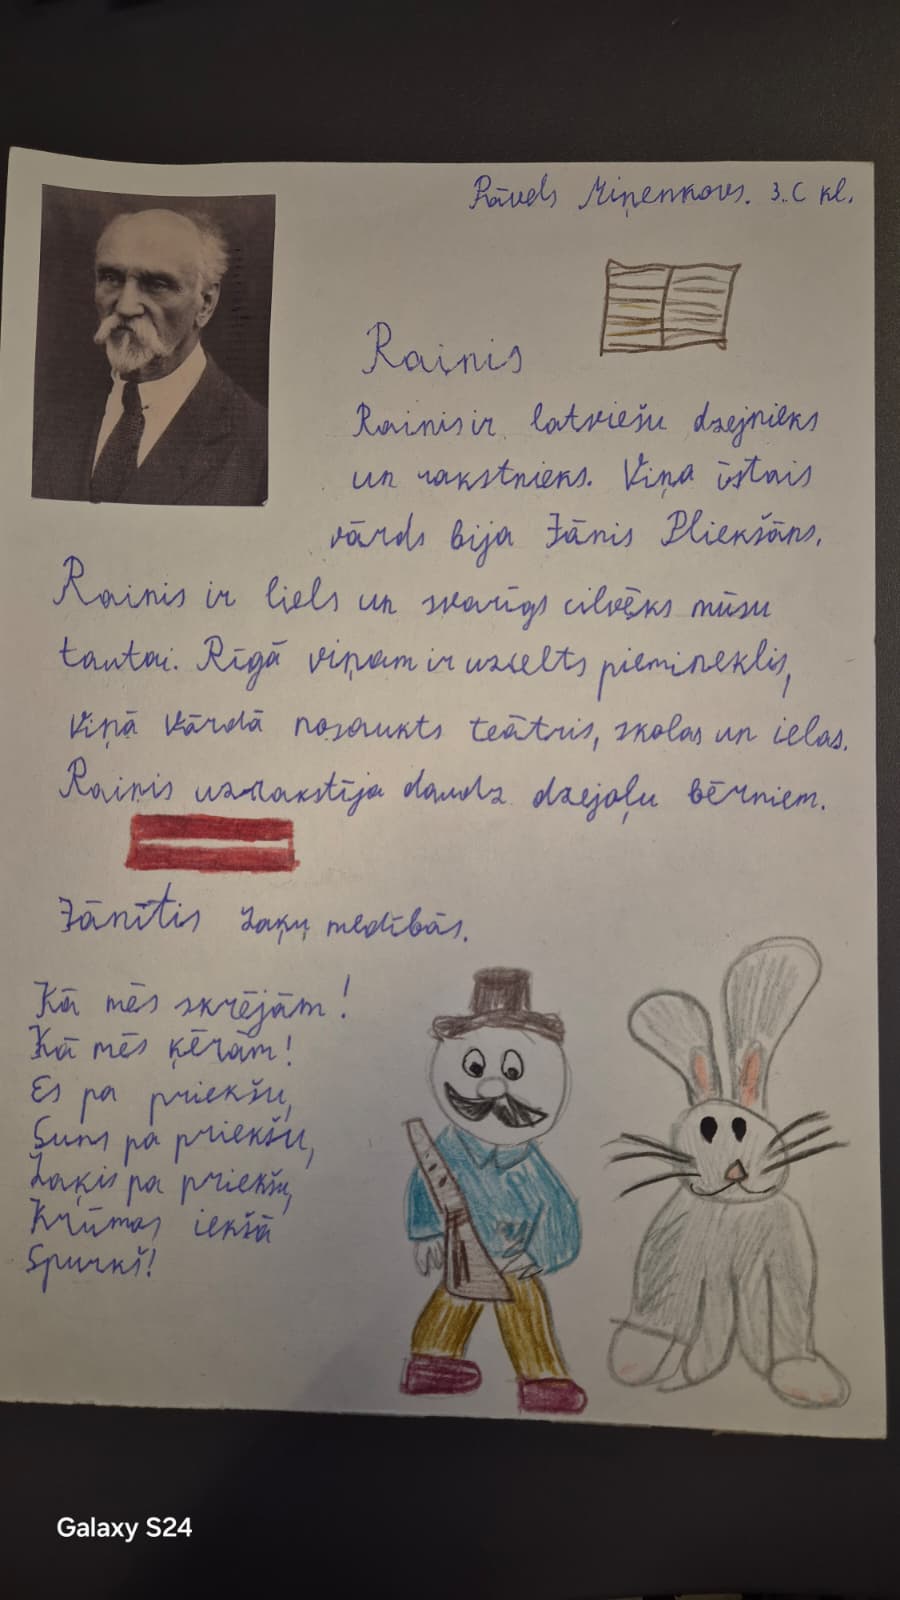 Pāvels Miņenkovs. 3.C kl.
Rainis
Rainis ir latviešu dzejnieks
un rakstnieks. Viņa īstais
vārds bija Jānis Pliekšāns.
Rainis ir liels un svarīgs cilvēks mūsu
tautai. Rīgā viņam ir uzcelts piemineklis,
Viņā vārdā nosaukts teātris, skolas un ielas.
Rainis uzrakstīja daudz dzejoļu bērniem.
Jānītis zaķu medībās.
Kā mēs skrējām!
Kā mēs ķērām!
Es pa priekšu,
Suns pa priekšu,
Zaķis pa priekšu,
Krūmos iekšā
Spurkš!
Galaxy S24